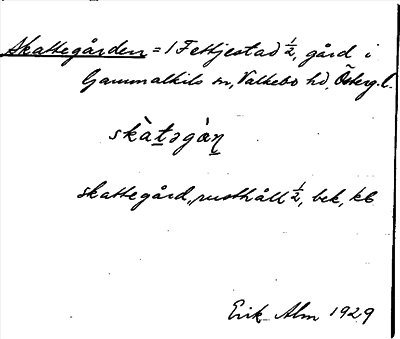 Skattegården = 1 Fettjestad ½, gård i
Gammalkils sn, Valkebo hd, Österg. l.
skàt̲əgàn̲
skattegård, rusthåll ½, bek, kb
Erik Alm 1929